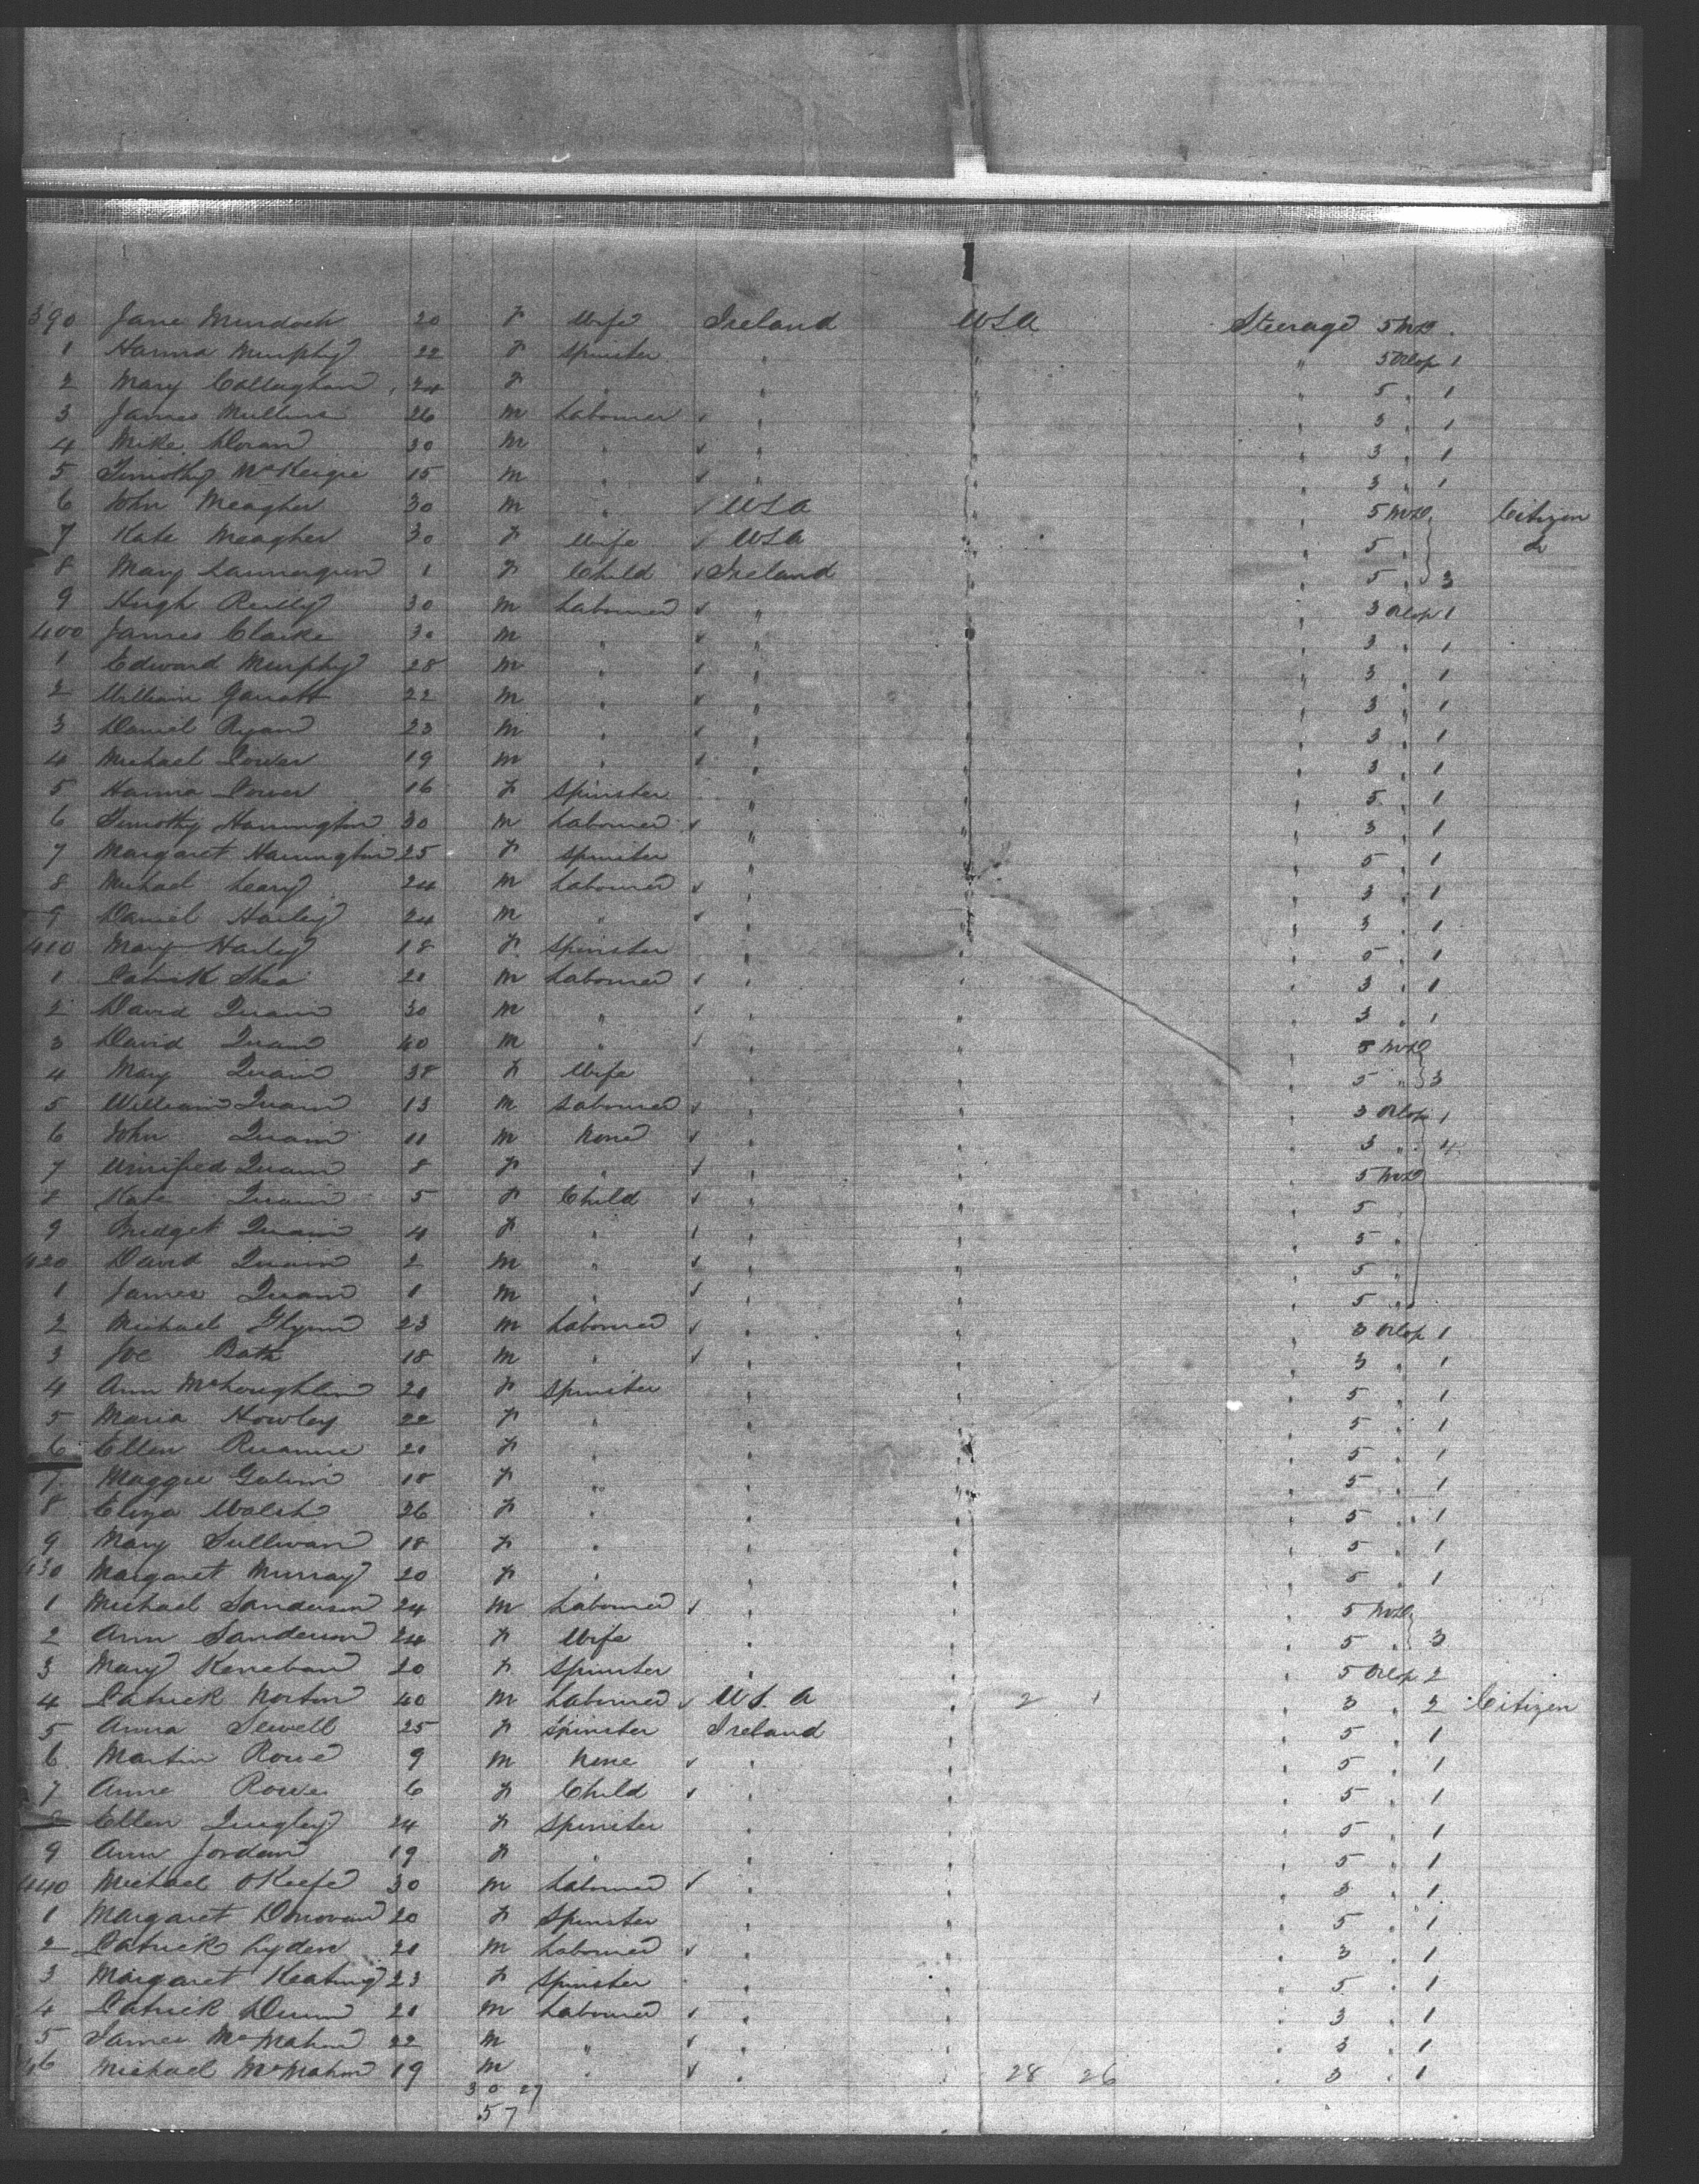 390 Jane Murdoch 20 F Wife Ireland USA Steerage 5 MD
1 Hanna Murphy 22 F Spinster " " " 5 Orlop 1
2 Mary Callaghan 24 F " " " " 5 " 1
3 James Mullins 26 M Labourer " " " 3 " 1
4 Mike Doran 30 M " " " " 3 " 1
5 Timothy McKeigie 15 M " " " " 3 " 1
6 John Meagher 30 M " USA " " 5 MD Citizen
7 Kate Meagher 30 F Wife USA " " 5 " do
8 Mary 1 F Child Ireland " " 5 " 3
9 Hugh Reilly 30 M Labourer " " " 3 Orlop 1
400 James Clarke 30 M " " " " 3 " 1
1 Edward Murphy 28 M " " " " 3 " 1
2 William Garratt 22 M " " " " 3 " 1
3 Daniel Ryan 23 M " " " " 3 " 1
4 Michael Power 19 M " " " " 3 " 1
5 Hanna Power 16 F Spinster " " " 5 " 1
6 Timothy Harrington 30 M Labourer " " " 3 " 1
7 Margaret Harrington 25 F Spinster " " " 5 " 1
8 Michael Leary 24 M Labourer " " " 3 " 1
9 Daniel Harley 24 M " " " " 3 " 1
410 Mary Harley 18 F Spinster " " " 5 " 1
1 Patrick Shea 20 M Labourer " " " 3 " 1
2 David Quain 30 M " " " " 3 " 1
3 David Quain 40 M " " " " 5 MD
4 Mary Quain 38 F Wife " " " 5 " 3
5 William Quain 13 M Labourer " " " 3 Orlop 1
6 John Quain 11 M None " " " 3 " 4
7 Winifred Quain 8 F " " " " 5 MD
8 Kate Quain 5 F Child " " " 5 "
9 Bridget Quain 4 F " " " " 5 "
420 David Quain 2 M " " " " 5 "
1 James Quain 1 M " " " " 5 "
2 Michael Glynn 23 M Labourer " " " 3 Orlop 1
3 Joe 18 M " " " " 3 " 1
4 Ann McLoughlin 20 F Spinster " " " 5 " 1
5 Maria Howley 22 F " " " " 5 " 1
6 Ellen Ruanne 20 F " " " " 5 " 1
7 Maggie 18 F " " " " 5 " 1
8 Eliza Walsh 26 F " " " " 5 " 1
9 Mary Sullivan 18 F " " " " 5 " 1
430 Margaret Murray 20 F " " " " 5 " 1
1 Michael Sanderson 24 M Labourer " " " 5 MD
2 Ann Sanderson 24 F Wife " " " 5 " 3
3 Mary Keneban 20 F Spinster " " " 5 Orlop 2
4 Patrick Norton 40 M Labourer U.S.A " 2 1 " 3 " 2 Citizen
5 Anna Sewell 25 F Spinster Ireland " " 5 " 1
6 Martin Rowe 9 M None " " " 5 " 1
7 Anne Rowe 6 F Child " " " 5 " 1
8 Ellen Quigley 24 F Spinster " " " 5 " 1
9 Ann Jordan 19 F " " " " 5 " 1
440 Michael OKeefe 30 M Labourer " " " 3 " 1
1 Margaret Donovan 20 F Spinster " " " 5 " 1
2 Patrick Lyden 20 M Labourer " " " 3 " 1
3 Margaret Keating 23 F Spinster " " " 5 " 1
4 Patrick Dunn 20 M Labourer " " " 3 " 1
5 James McMahon 22 M " " " " 3 " 1
446 Michael McMahon 19 M " " " 28 26 " 3 " 1
30 27
57